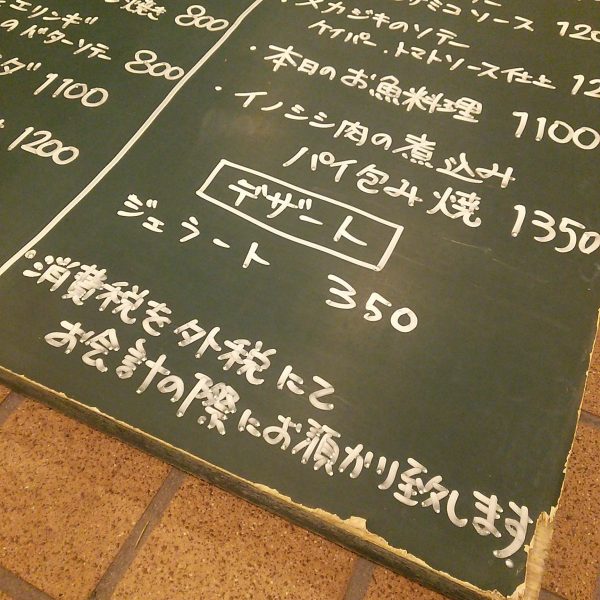 焼き 800
エリンギ
のバターソテー 800
ダ 1100
1200
ソース 120
メカジキのソテー
ケイパー・トマトソース仕立 12
・本日のお魚料理 1100
・イノシシ肉の煮込み
パイ包み焼 1350
デザート
ジェラート 350
・消費税を外税にて
お会計の際にお預かり致します.